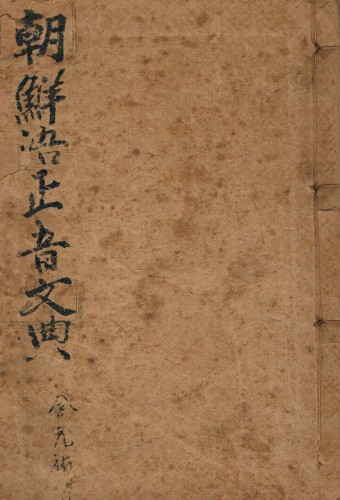 朝鮮語正音文典
金元祐